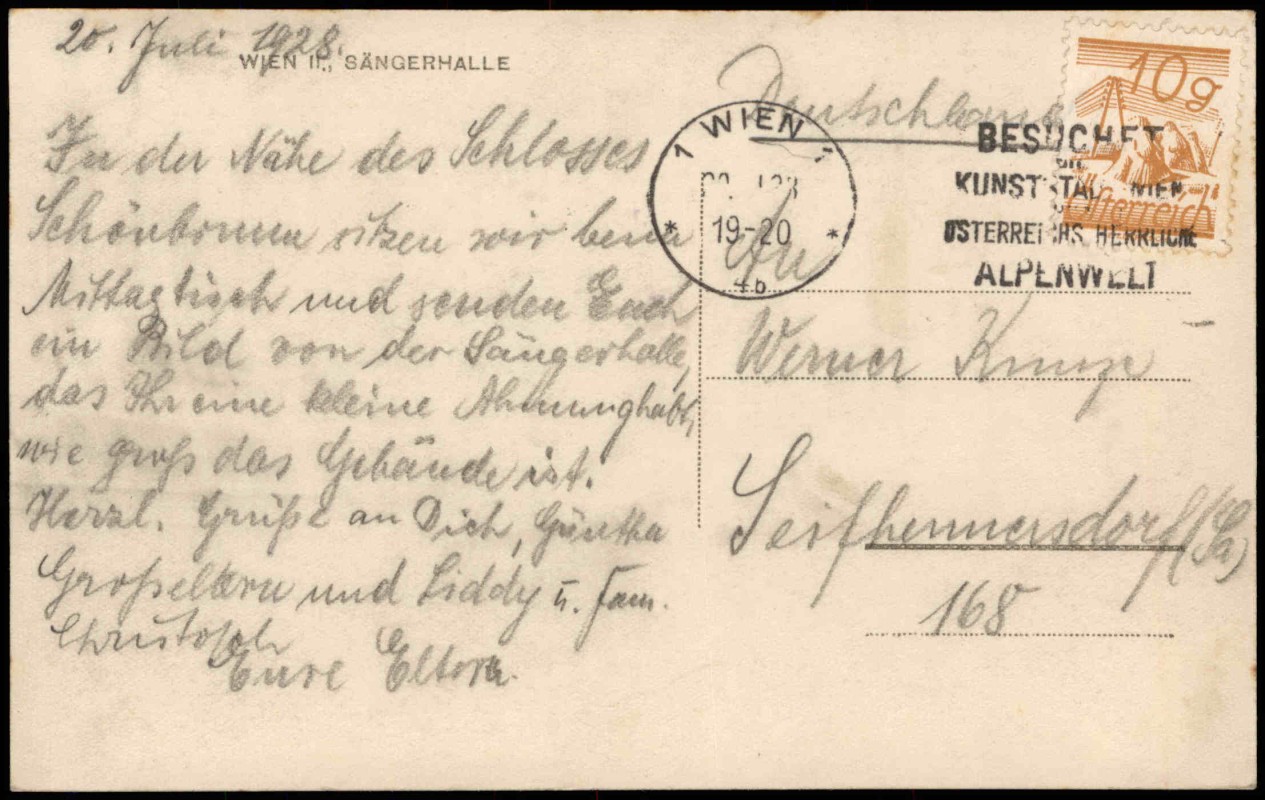 20. Juli 1928.
WIEN II., SÄNGERHALLE
In der Nähe des Schlosses
Schönbrunn sitzen wir beim
Mittagtisch und senden Euch
ein Bild von der Sängerhalle,
das Ihr eine kleine Ahnung habt,
wie groß das Gebäude ist.
Herzl. Grüße an Dich, Günther
Großeltern und Liddy u. Fam.
Christoph
Eure Eltern.
Deutschland
1 WIEN 1
19-20
* *
4b
BESUCHET
DIE
KUNSTSTADT WIEN
ÖSTERREICHS HERRLICHE
ALPENWELT
10g
Österreich
An
Werner Kunze
Seifhennersdorf (Sa)
168